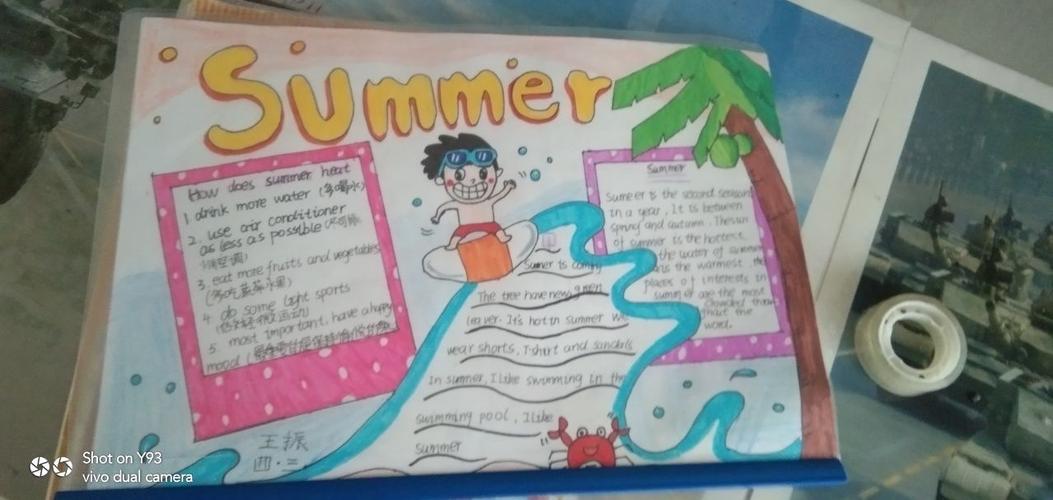 Summer
How does summer heat
1. drink more water (多喝水)
2. use air conditioner
as less as possible
3. eat more fruits and vegetables
(多吃蔬菜水果)
4. do some light sports
5. most important, have a happy
mood
王振
四·二
Sumer is coming
The tree have new green
leaver. It's hot in summer We
wear shorts, T-shirt and sandals
In summer, I like swimming in the
swimming pool, I like
summer
Summer
Sumeer is the second season
in a year, It is between
spring and autumn. The sun
of summer is the hottest,
the water of summer
is the warmest, the
places of interests in
summer are the most
crowded than
that the
word.
Shot on Y93
vivo dual camera